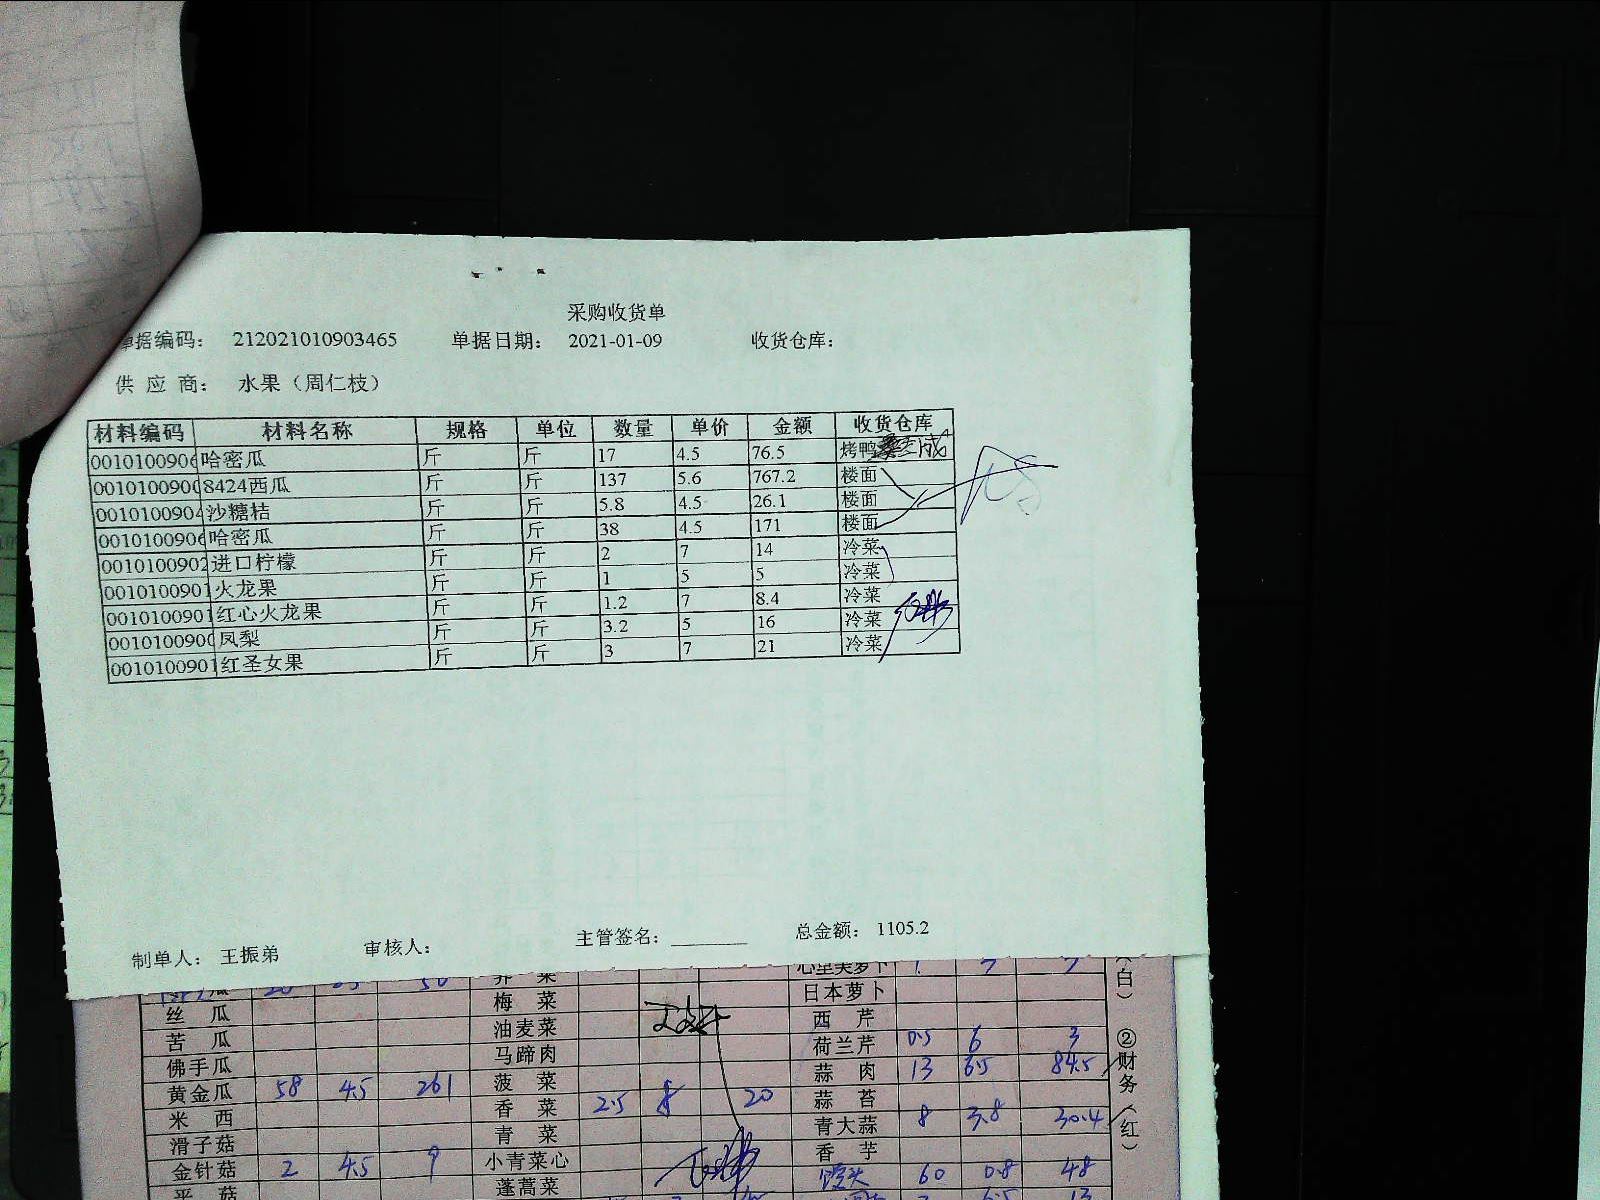 采购收货单
单据编码： 212021010903465 单据日期： 2021-01-09 收货仓库：
供 应 商： 水果（周仁枝）
材料编码 材料名称 规格 单位 数量 单价 金额 收货仓库
001010090 哈密瓜 斤 斤 17 4.5 76.5 烤鸭
001010090 8424西瓜 斤 斤 137 5.6 767.2 楼面
001010090 沙糖桔 斤 斤 5.8 4.5 26.1 楼面
001010090 哈密瓜 斤 斤 38 4.5 171 楼面
0010100902 进口柠檬 斤 斤 2 7 14 冷菜
001010090 火龙果 斤 斤 1 5 5 冷菜
001010090 红心火龙果 斤 斤 1.2 7 8.4 冷菜
001010090 凤梨 斤 斤 3.2 5 16 冷菜
001010090 红圣女果 斤 斤 3 7 21 冷菜
制单人： 王振弟 审核人： 主管签名：_______ 总金额： 1105.2
心里美萝卜
梅 菜 日本萝卜
丝 瓜 油麦菜 西 芹
苦 瓜 马蹄肉 荷兰芹 0.5 6 3
佛手瓜 菠 菜 蒜 肉 13 6.5 84.5
黄金瓜 58 4.5 261 香 菜 2.5 8 20 蒜 苔
米 西 青 菜 青大蒜 8 3.8 30.4
滑子菇 小青菜心 香 芋
金针菇 2 4.5 9 蓬蒿菜 馒头 60 0.8 48
平 菇
（白） ②财务（红）